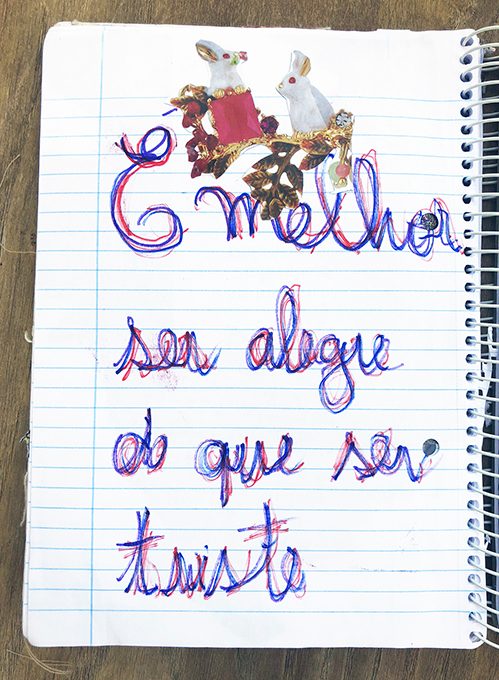 É melhor
ser alegre
do que ser
triste